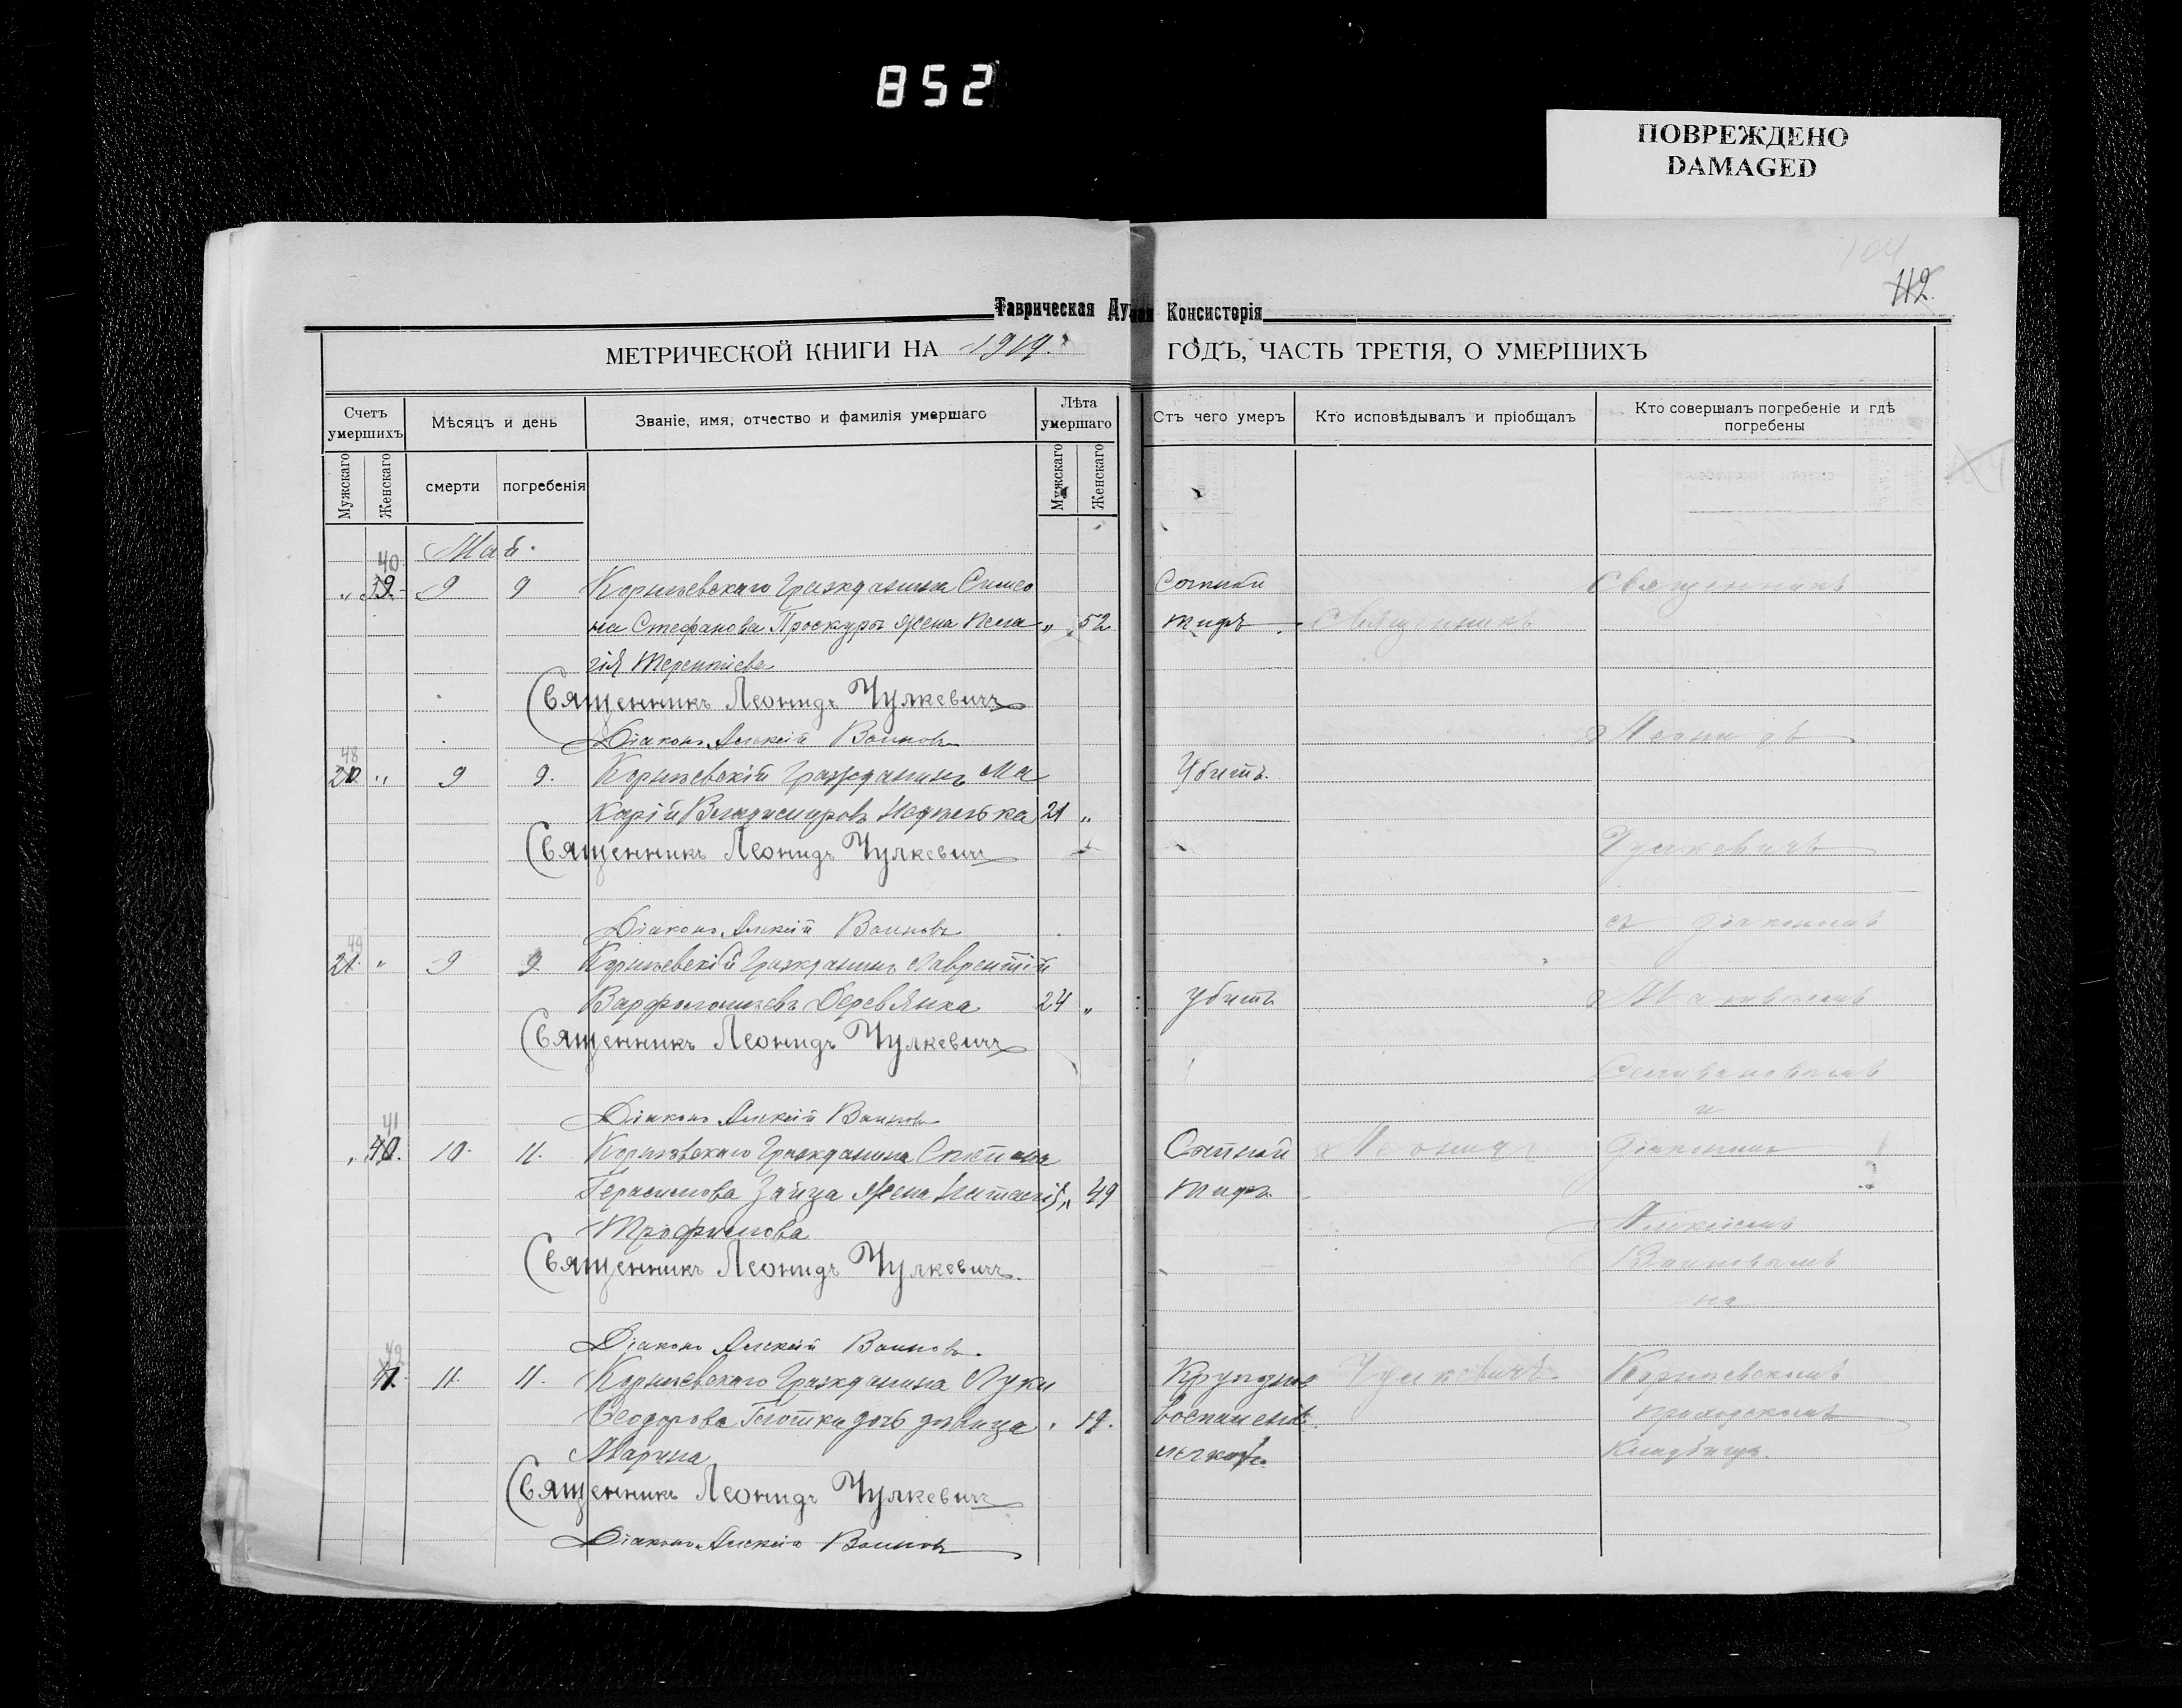 852
ПОВРЕЖДЕНО
DAMAGED
104
112.
Таврическая Дух Консисторія
МЕТРИЧЕСКОЙ КНИГИ НА 1919. ГОДЪ, ЧАСТЬ ТРЕТІЯ, О УМЕРШИХЪ
Счетъ умершихъ
Мѣсяцъ и день
Званіе, имя, отчество и фамилія умершаго
Лѣта умершаго
Отъ чего умеръ
Кто исповѣдывалъ и пріобщалъ
Кто совершалъ погребеніе и гдѣ погребены
Мужскаго
Женскаго
смерти
погребенія
Мужскаго
Женскаго
Май.
40
" 39. 9 9 Корниевскаго Гражданина Симео Сыпной Священникъ
на Стефанова Проскуры жена Пела " 52 тифъ Священникъ
гія Терентіева
Священникъ Леонидъ Чулкевичъ
Діаконъ Алексій Воиновъ Леонидъ
48
20 " 9 9. Корниевскій Гражданинъ Ма Убитъ.
карій Владимировъ Недѣлька 21 "
Священникъ Леонидъ Чулкевичъ Чулкевичъ
Діаконъ Алексій Воиновъ съ діакономъ
49
21. " 9 9. Корниевскій Гражданинъ Лаврентій
Варфоломѣевъ Деревянка 24 " Убитъ
Священникъ Леонидъ Чулкевичъ
и
Діаконъ Алексій Воиновъ
41
" 40. 10. 11. Корниевскаго Гражданина Сыпной Леонидъ діакономъ
Герасимова Зайца жена " 49 тифъ.
Трофимова Алексіемъ
Священникъ Леонидъ Чулкевичъ. Воиновымъ
на
Діаконъ Алексій Воиновъ.
42
41. 11. 11. Корниевскаго Гражданина Луки Крупозное Чулкевичъ Корниевскомъ
Ѳеодорова дочь дѣвица " 19. воспаленіе приходскомъ
Марина легкихъ. кладбищѣ.
Священникъ Леонидъ Чулкевичъ
Діаконъ Алексій Воиновъ